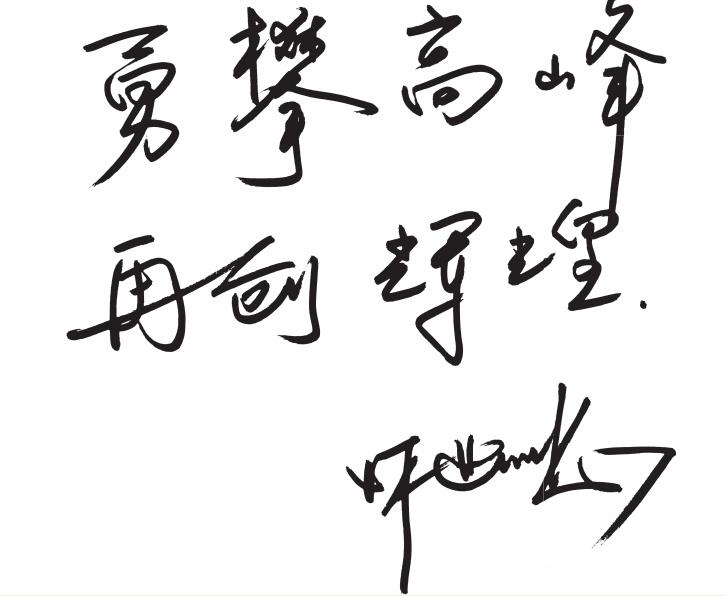 勇攀高峰
再创辉煌.